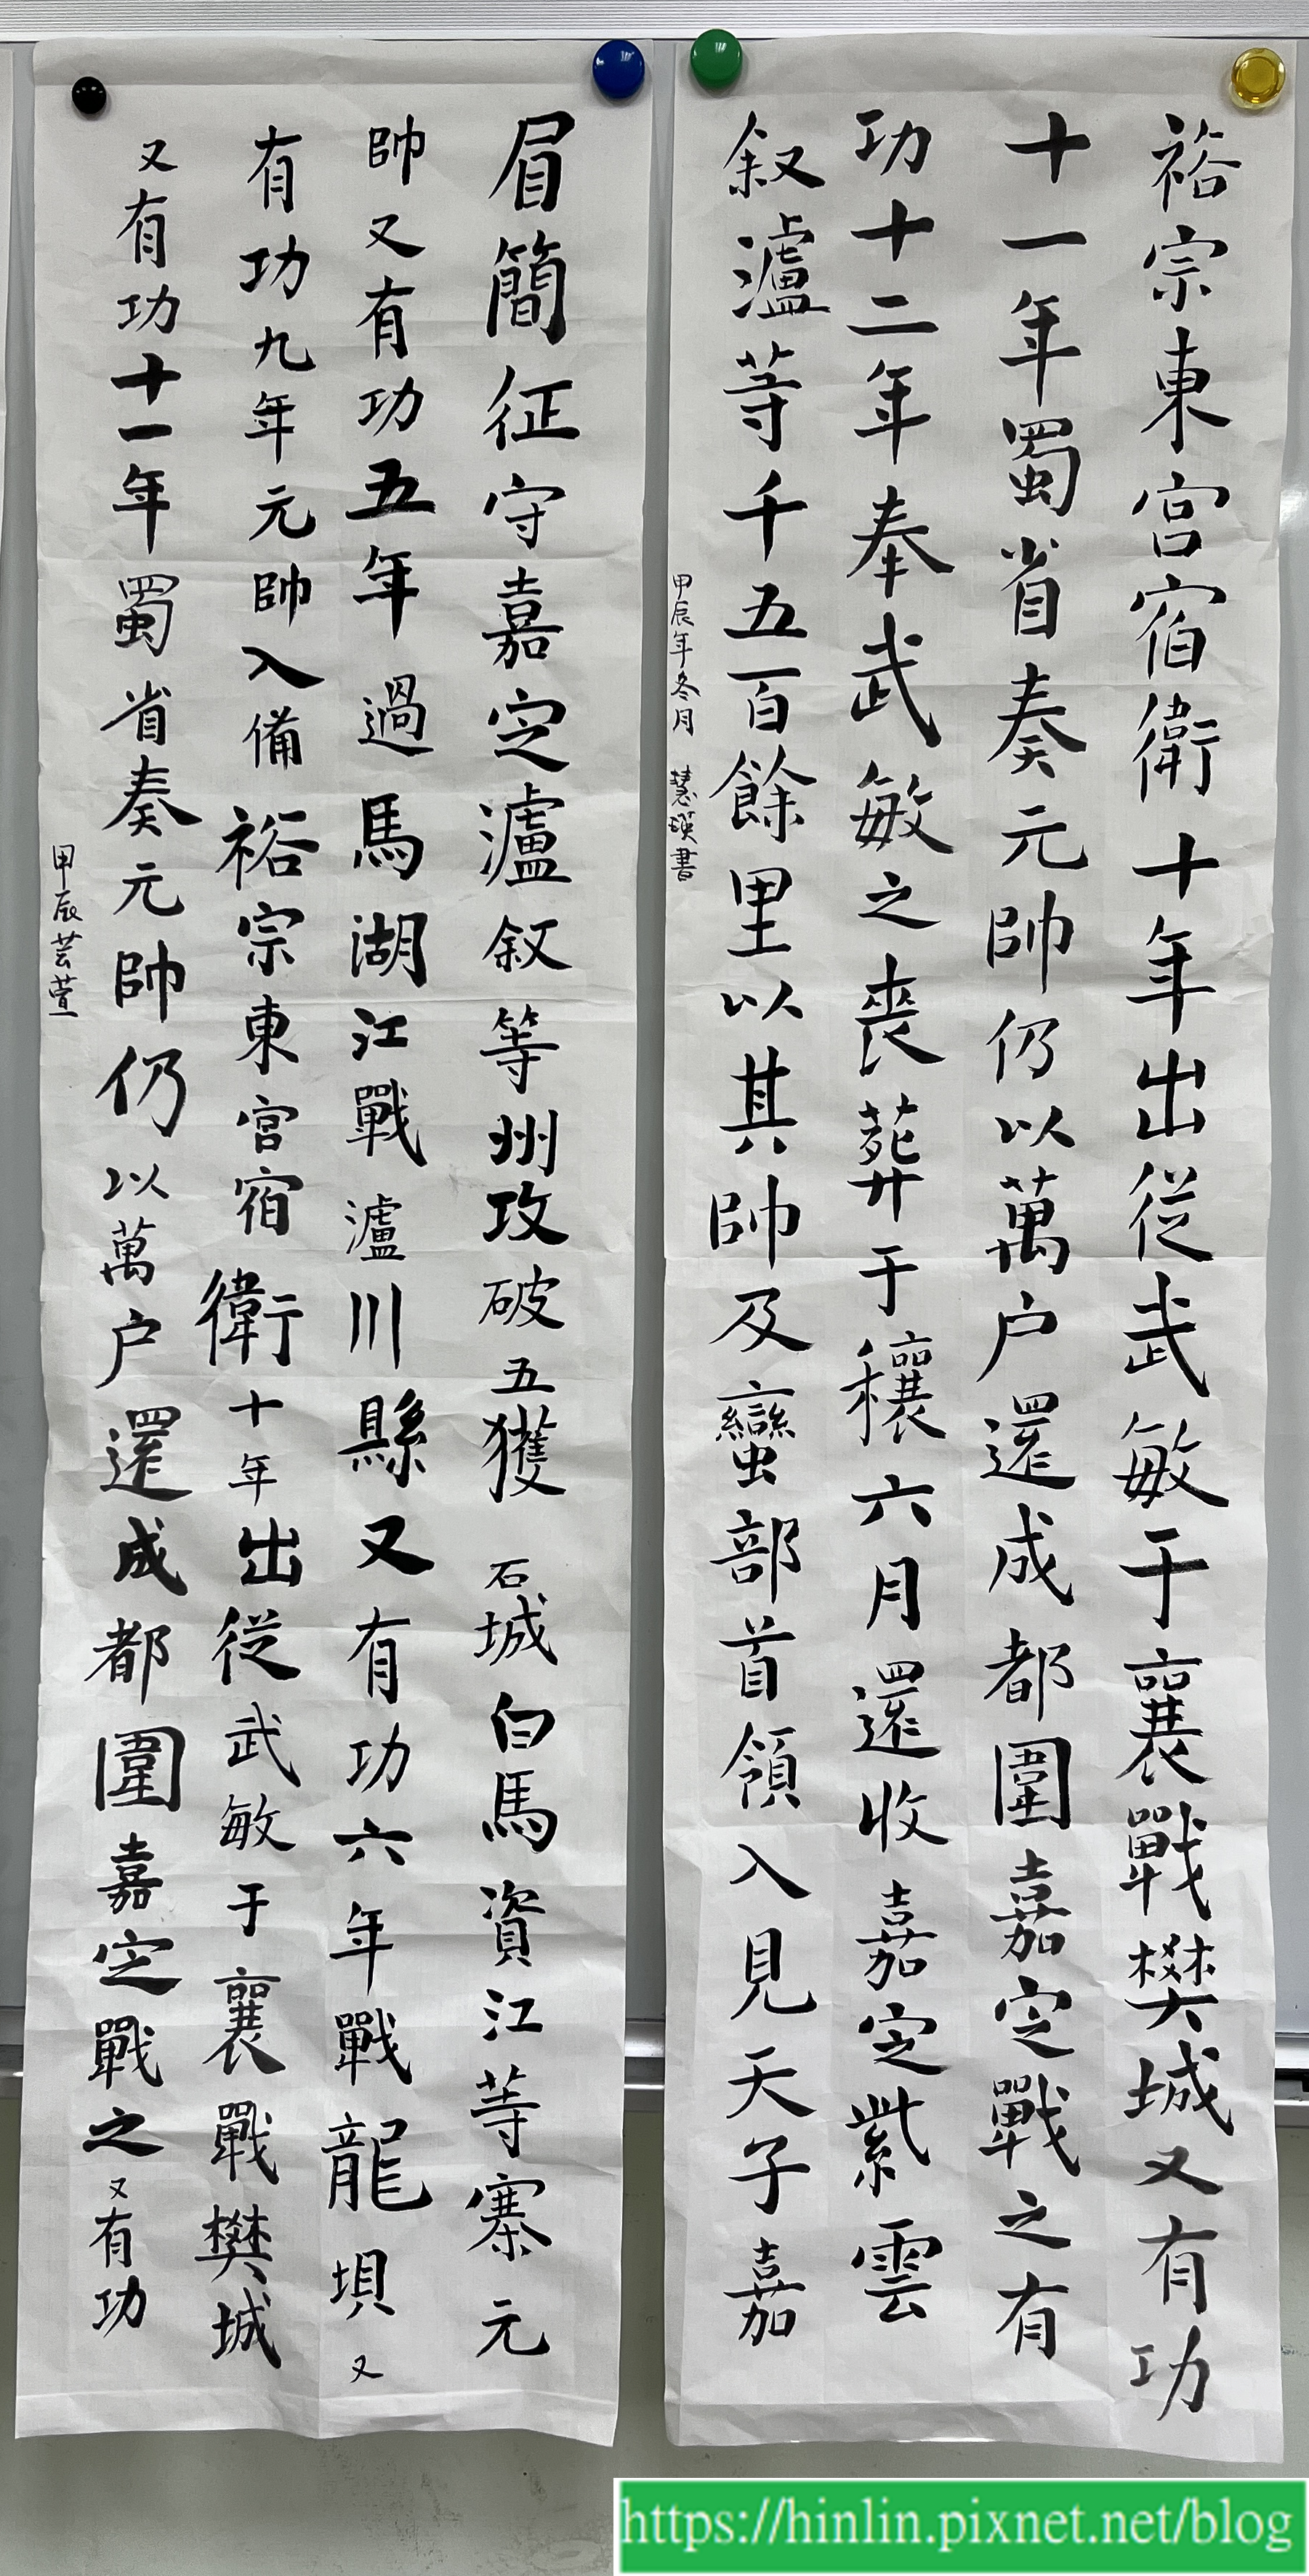 裕宗東宮宿衛十年出從武敏于襄戰樊城又有功
十一年蜀省奏元帥仍以萬户還成都圍嘉定戰之有
功十二年奉武敏之喪葬于穰六月還收嘉定紫雲
叙瀘等千五百餘里以其帥及蠻部首領入見天子嘉
甲辰年冬月 慧瑛書
眉簡征守嘉定瀘叙等州攻破五獲石城白馬資江等寨元
帥又有功五年過馬湖江戰瀘川縣又有功六年戰龍垻又
有功九年元帥入備裕宗東宮宿衛十年出從武敏于襄戰樊城
又有功十一年蜀省奏元帥仍以萬户還成都圍嘉定戰之又有功
甲辰芸萱
https://hinlin.pixnet.net/blog